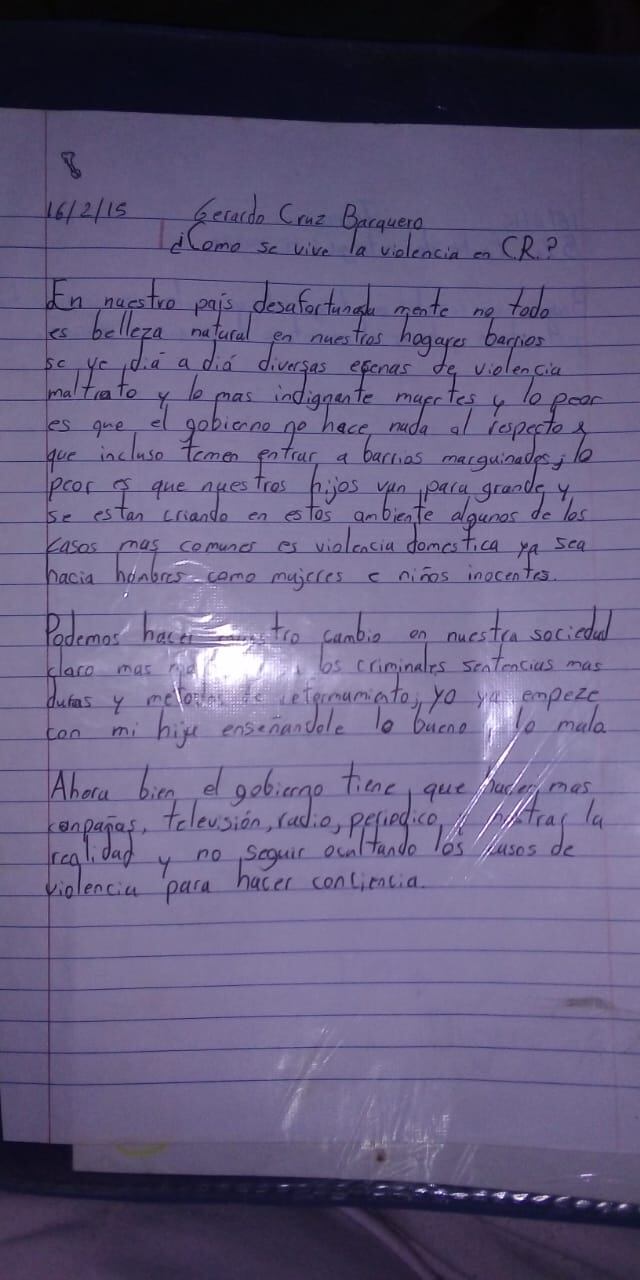 8
16/2/15 Gerardo Cruz Barquero
¿Como se vive la violencia en C.R.?
En nuestro pais desafortunada mente no todo
es belleza natural en nuestros hogares barrios
se ve diá a diá diversas esenas de violencia
maltrato y lo mas indignante muertes y lo peor
es que el gobierno no hace nada al respecto y
que incluso temen entrar a barrios marguinados, lo
peor es que nuestros hijos van para grande y
se estan criando en estos ambiente algunos de los
casos mas comunes es violencia domestica ya sea
hacia honbres como mujeres e niños inocentes.
Podemos hacer cambio en nuestra sociedad
claro mas los criminales sentencias mas
duras y de reformamiento, yo ya empeze
con mi hija enseñandole lo bueno, lo malo
Ahora bien el gobierno tiene que hacer mas
conpañas, televisión, radio, periodico, la
realidad y no seguir ocultando los casos de
violencia para hacer conciencia.